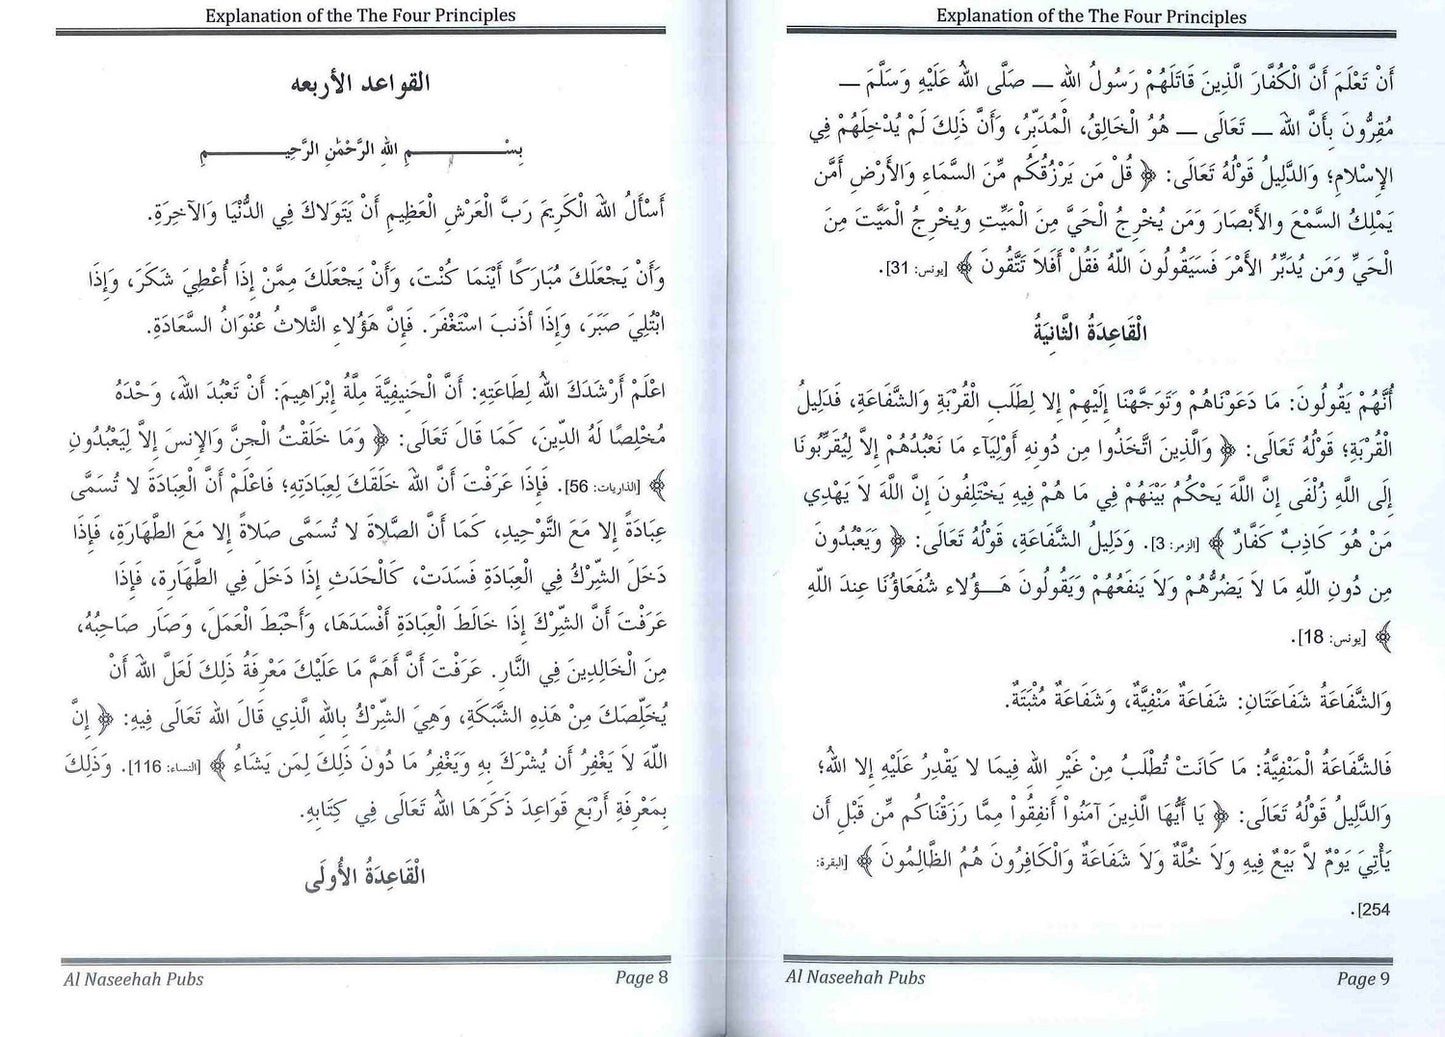 Explanation of the The Four Principles
القواعد الأربعه
بِسْـــــــــــمِ اللهِ الرَّحْمَٰنِ الرَّحِيـــــــــــمِ
أَسْأَلُ اللهَ الْكَرِيمَ رَبَّ الْعَرْشِ الْعَظِيمِ أَنْ يَتَوَلاكَ فِي الدُّنْيَا وَالآخِرَةِ.
وَأَنْ يَجْعَلَكَ مُبَارَكًا أَيْنَمَا كُنْتَ، وَأَنْ يَجْعَلَكَ مِمَّنْ إِذَا أُعْطِيَ شَكَرَ، وَإِذَا
ابْتُلِيَ صَبَرَ، وَإِذَا أذنبَ اسْتَغْفَرَ. فَإِنَّ هَؤُلاءِ الثَّلاثُ عُنْوَانُ السَّعَادَةِ.
اعْلَمْ أَرْشَدَكَ اللهُ لِطَاعَتِهِ: أَنَّ الْحَنِيفِيَّةَ مِلَّةُ إِبْرَاهِيمَ: أَنْ تَعْبُدَ اللهَ، وَحْدَهُ
مُخْلِصًا لَهُ الدِّينَ، كَمَا قَالَ تَعَالَى: ﴿ وَمَا خَلَقْتُ الْجِنَّ وَالإِنسَ إِلاَّ لِيَعْبُدُونِ
﴾ [الذاريات: 56]. فَإِذَا عَرَفْتَ أَنَّ اللهَ خَلَقَكَ لِعِبَادَتِهِ؛ فَاعْلَمْ أَنَّ الْعِبَادَةَ لا تُسَمَّى
عِبَادَةً إِلا مَعَ التَّوْحِيدِ، كَمَا أَنَّ الصَّلاةَ لا تُسَمَّى صَلاةً إِلا مَعَ الطَّهَارَةِ، فَإِذَا
دَخَلَ الشِّرْكُ فِي الْعِبَادَةِ فَسَدَتْ، كَالْحَدَثِ إِذَا دَخَلَ فِي الطَّهَارَةِ، فَإِذَا
عَرَفْتَ أَنَّ الشِّرْكَ إِذَا خَالَطَ الْعِبَادَةَ أَفْسَدَهَا، وَأَحْبَطَ الْعَمَلَ، وَصَارَ صَاحِبُهُ،
مِنَ الْخَالِدِينَ فِي النَّارِ. عَرَفْتَ أَنَّ أَهَمَّ مَا عَلَيْكَ مَعْرِفَةُ ذَلِكَ لَعَلَّ اللهَ أَنْ
يُخَلِّصَكَ مِنْ هَذِهِ الشَّبَكَةِ، وَهِيَ الشِّرْكُ بِاللهِ الَّذِي قَالَ الله تَعَالَى فِيهِ: ﴿ إِنَّ
اللّهَ لاَ يَغْفِرُ أَن يُشْرَكَ بِهِ وَيَغْفِرُ مَا دُونَ ذَلِكَ لِمَن يَشَاءُ ﴾ [النساء: 116]. وَذَلِكَ
بِمَعْرِفَةِ أَرْبَعِ قَوَاعِدَ ذَكَرَهَا اللهُ تَعَالَى فِي كِتَابِهِ.
الْقَاعِدَةُ الأُولَى
Al Naseehah Pubs
Page 8
Explanation of the The Four Principles
أَنْ تَعْلَمَ أَنَّ الْكُفَّارَ الَّذِينَ قَاتَلَهُمْ رَسُولُ اللهِ ـــ صَلَّى اللهُ عَلَيْهِ وَسَلَّمَ ـــ
مُقِرُّونَ بِأَنَّ اللهَ ـــ تَعَالَى ـــ هُوُ الْخَالِقُ، الْمُدَبِّرُ، وَأَنَّ ذَلِكَ لَمْ يُدْخِلْهُمْ فِي
الإِسْلامِ؛ وَالدَّلِيلُ قَوْلُهُ تَعَالَى: ﴿ قُلْ مَن يَرْزُقُكُم مِّنَ السَّمَاءِ وَالأَرْضِ أَمَّن
يَمْلِكُ السَّمْعَ والأَبْصَارَ وَمَن يُخْرِجُ الْحَيَّ مِنَ الْمَيِّتِ وَيُخْرِجُ الْمَيَّتَ مِنَ
الْحَيِّ وَمَن يُدَبِّرُ الأَمْرَ فَسَيَقُولُونَ اللّهُ فَقُلْ أَفَلاَ تَتَّقُونَ ﴾ [يونس: 31].
الْقَاعِدَةُ الثَّانِيَةُ
أُنَّهُمْ يَقُولُونَ: مَا دَعَوْنَاهُمْ وَتَوَجَّهْنَا إِلَيْهِمْ إِلا لِطَلَبِ الْقُرْبَةِ وَالشَّفَاعَةِ، فَدَلِيلُ
الْقُرْبَةِ؛ قَوْلُهُ تَعَالَى: ﴿ وَالَّذِينَ اتَّخَذُوا مِن دُونِهِ أَوْلِيَاء مَا نَعْبُدُهُمْ إِلاَّ لِيُقَرِّبُونَا
إِلَى اللَّهِ زُلْفَى إِنَّ اللَّهَ يَحْكُمُ بَيْنَهُمْ فِي مَا هُمْ فِيهِ يَخْتَلِفُونَ إِنَّ اللَّهَ لاَ يَهْدِي
مَنْ هُوَ كَاذِبٌ كَفَّارٌ ﴾ [الزمر: 3]. وَدَلِيلُ الشَّفَاعَةِ، قَوْلُهُ تَعَالَى: ﴿ وَيَعْبُدُونَ
مِن دُونِ اللّهِ مَا لاَ يَضُرُّهُمْ وَلاَ يَنفَعُهُمْ وَيَقُولُونَ هَـــؤُلاء شُفَعَاؤُنَا عِندَ اللّهِ
﴾ [يونس: 18].
وَالشَّفَاعَةُ شَفَاعَتَانِ: شَفَاعَةٌ مَنْفِيَّةٌ، وَشَفَاعَةٌ مُثْبَتَةٌ.
فَالشَّفَاعَةُ الْمَنْفِيَّةُ: مَا كَانَتْ تُطْلَبُ مِنْ غَيْرِ اللهِ فِيمَا لا يَقْدِرُ عَلَيْهِ إِلا اللهُ؛
وَالدَّلِيلُ قَوْلُهُ تَعَالَى: ﴿ يَا أَيُّهَا الَّذِينَ آمَنُواْ أَنفِقُواْ مِمَّا رَزَقْنَاكُم مِّن قَبْلِ أَن
يَأْتِيَ يَوْمٌ لاَّ بَيْعٌ فِيهِ وَلاَ خُلَّةٌ وَلاَ شَفَاعَةٌ وَالْكَافِرُونَ هُمُ الظَّالِمُونَ ﴾ [البقرة:
254].
Al Naseehah Pubs
Page 9